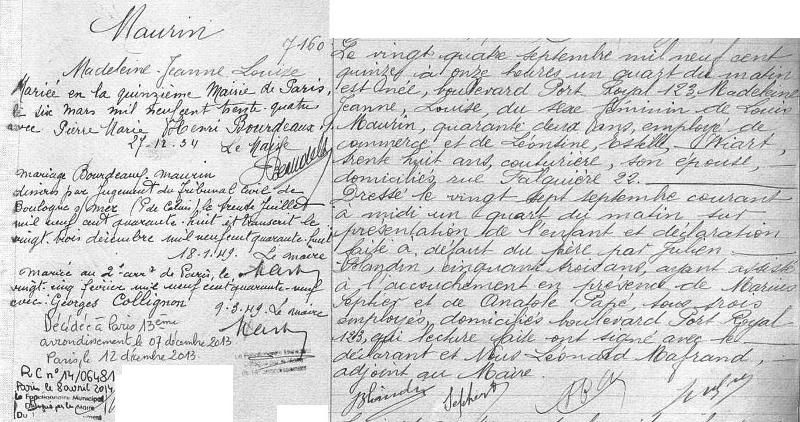 Maurin
7160
Madeleine Jeanne Louise
Mariée en la quinzième Mairie de Paris,
le six mars mil neuf cent trente quatre
avec Pierre Marie Henri Bourdeaux
27-12-34 Le Maire
mariage Bourdeaux-Maurin
dissous par jugement du tribunal civil de
Boulogne s/ Mer (P. de Calais), le trente juillet
mil neuf cent quarante-huit et transcrit le
vingt-trois décembre mil neuf cent quarante-huit
18-1-49. Le maire
mariée au 2e arrt de Paris, le
vingt-cinq février mil neuf cent quarante-neuf
avec Georges Collignon
9-3-49. Le maire
Décédée à Paris 13ème
arrondissement le 07 décembre 2013
Paris, le 12 décembre 2013
RC n° 14/06481
Paris le 8 avril 2014
Le Fonctionnaire Municipal
Délégué par le Maire
Du
Le vingt quatre septembre mil neuf cent
quinze, à onze heures un quart du matin
est née, boulevard Port Royal 123, Madeleine
Jeanne, Louise, du sexe féminin de Louis
Maurin, quarante deux ans, employé de
commerce et de Léontine, Estelle Wiart,
trente huit ans, couturière, son épouse,
domiciliés, rue Falguière 22.
Dressé le vingt sept septembre courant
à midi un quart du matin sur
présentation de l'enfant et déclaration
faite à défaut du père par Julien
Blandin, cinquante trois ans, ayant assisté
à l'accouchement en présence de Marius
Sepher et de Anatole Papé, tous trois
employés, domiciliés boulevard Port Royal
123, qui lecture faite ont signé avec le
déclarant et Nous Léonard
adjoint au Maire.
Blandin Sepher